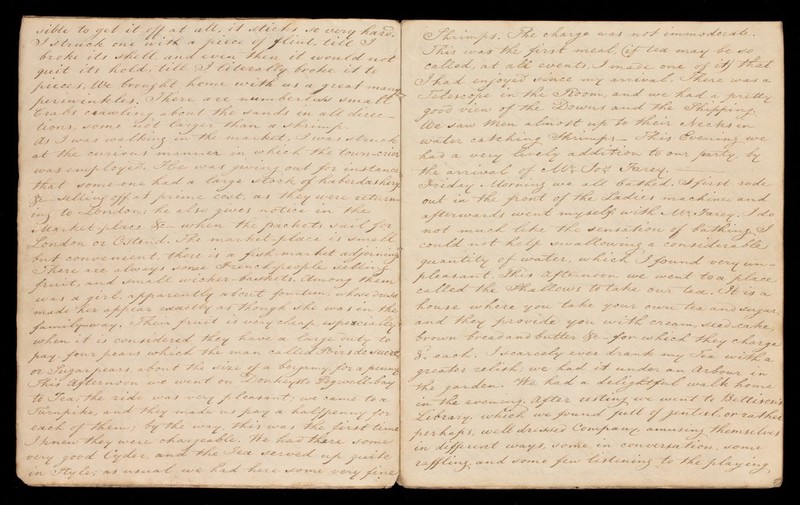 sible to get it off at all, it sticks so very hard.
I struck one with a piece of flint, till I
broke its shell, and even then it would not
quit its hold, till I literally broke it to
pieces. We brought home with us a great many
periwinkles. There are numberless small
Crabs crawling about the sands in all direc-
tions, some not larger than a shrimp.
As I was walking in the market, I was struck
at the curious manner in which the town-crier
was employed. He was giving out for instance
that some-one had a large stock of haberdashery
&c selling off at prime cost, as they were return-
ing to London; he also gives notice in the
Market place &c when the packets sail for
London or Ostend. The market-place is small
but convenient, there is a fish market adjoining
There are always some French people selling
fruit, and small wicher-baskets. Among them
was a girl apparently about fourteen, whose
made her appear exactly as though she was in the
family way. Their fruit is very cheap especially
when it is considered they have a large duty to
pay, four pears which the man called Poirs de sucre
or Sugar pears about the size of a bergamy for a penny
This Afternoon we went on Donkeys to Pegwell-bay
to Tea; the ride was very pleasant; we came to a
Turnpike, and they made us pay a halfpenny for
each of them; by the way this was the first time
I knew they were chargeable. We had there some
very good Cyder, and the Tea served up quite
in Style; as usual we had here some very fine
Shrimps. The charge was not immoderate.
This was the first meal, (if tea may be so
called, at all events, I made one of it) that
I had enjoyed since my arrival. There was a
Telescope in the Room, and we had a pretty
good view of the Downs and the Shipping.
We saw Men almost up to their Necks in
water catching Shrimps — This Evening we
had a very lively addition to our party by
the arrival of Mr. Jos. Farey.
Friday Morning we all bathed. I first rode
out in the front of the Ladies machine and
afterwards went myself with Mr. Farey. I do
not much like the sensation of bathing, I
could not help swallowing a considerable
quantity of water, which I found very un-
pleasant. This afternoon we went to a place
called the Shallows to take our tea. It is a
house where you take your own tea and sugar,
and they provide you with cream, seed-cake,
brown bread and butter &c for which they charge
each. I scarcely ever drank my Tea with a
greater relish; we had it under an Arbour in
the garden. We had a delightful walk home
in the evening. After resting we went to Bettison's
Library, which we found full of genteel, or rather
perhaps, well dressed Company amusing themselves
in different ways, some in conversation, some
raffling, and some few listening to the playing